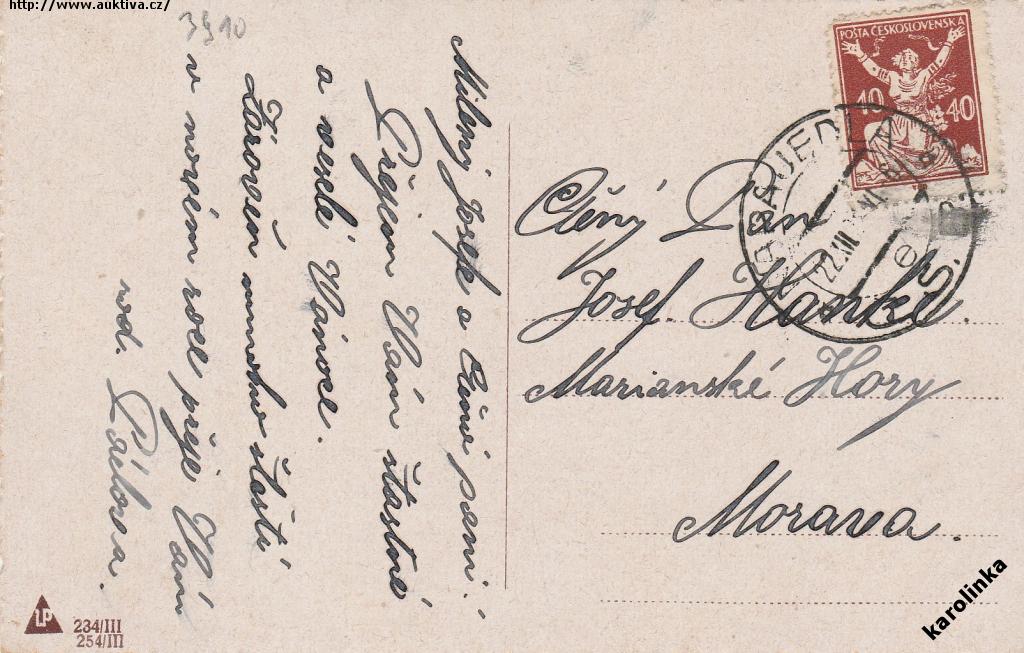 http://www.auktiva.cz/
3910
Milený Josefe a Ctěná paní!
Přejem Vám štastné
a veselé Vánoce.
Zárověň mnoho štastí
v novém roce přeje Vám
rod.
POŠTA ČESKOSLOVENSKÁ
40 40
22.XII
e
Ctěný Pan
Josef Hanke.
Marianské Hory
Morava.
LP
234/III
254/III
karolinka